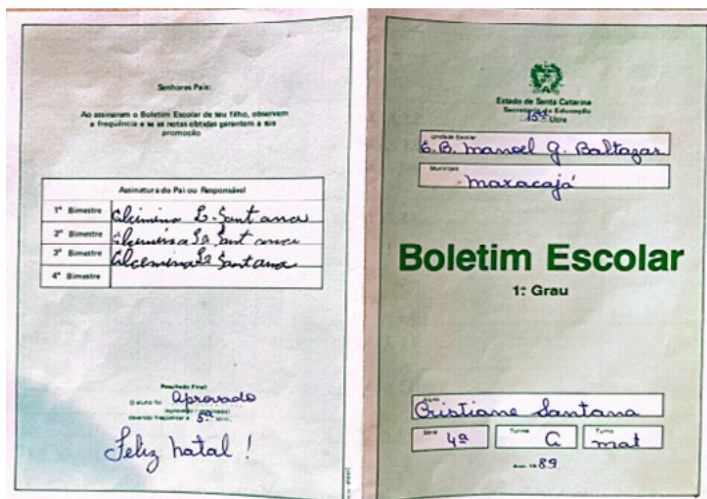 Senhores Pais:
Ao assinarem o Boletim Escolar de seu filho, observem
a frequência e se as notas obtidas garantem a sua
promoção
Assinatura do Pai ou Responsável
1º Bimestre
2º Bimestre
3º Bimestre
4º Bimestre
Santana
Resultado Final:
O aluno foi aprovado
devendo freqüentar a 5ª série.
Feliz natal!
Estado de Santa Catarina
Secretaria da Educação
15ª Ucre
Unidade Escolar
E.B. Manoel G. Baltazar
Município
Maracajá
Boletim Escolar
1º Grau
Aluno
Cristiane Santana
Série 4ª Turma C Turno mat
Ano: 19 89